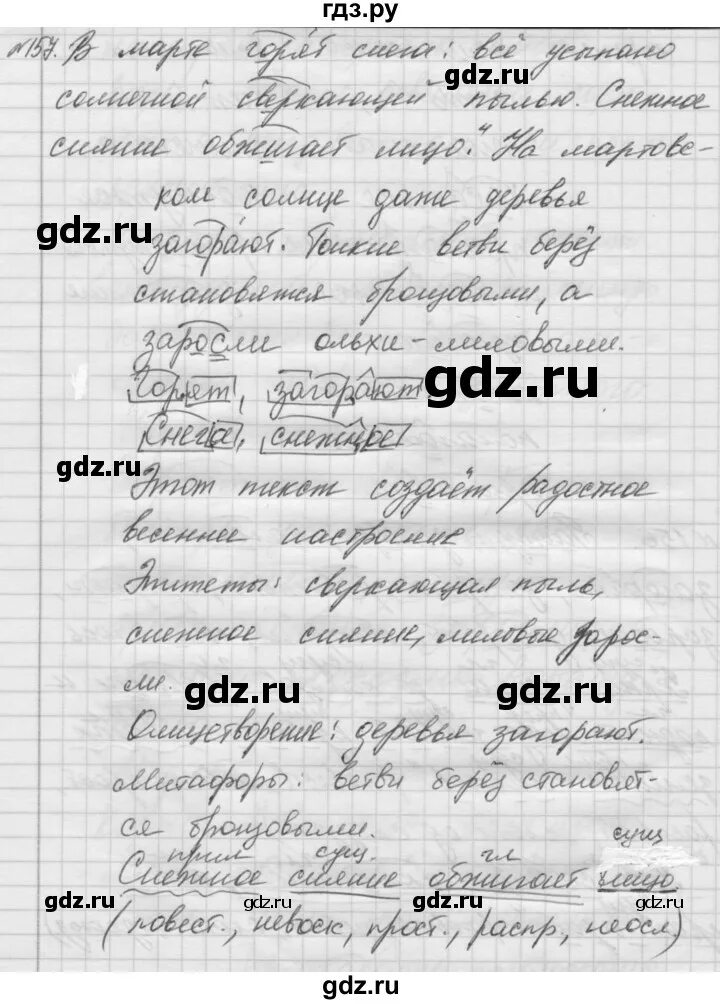 гдз.ру
№157. В марте горят снега: всё усыпано
солнечной сверкающей пылью. Снежное
сияние обжигает лицо." На мартовс-
gdz.ru
ком солнце даже деревья
gdz.ru
загорают. Тонкие ветви берёз
становятся бронзовыми, а
заросли ольхи - лиловыми.
gdz.ru
Горят, загорают
Снега, снежное
gdz.ru
Этот текст создаёт радостное
весеннее настроение
Эпитеты: сверкающая пыль,
снежное сияние, лиловые зарос-
ли.
gdz.ru gdz.ru
Олицетворение: деревья загорают.
Метафоры: ветви берёз становят-
ся бронзовыми.
gdz.ru
прил сущ. гл сущ
Снежное сияние обжигает лицо
(повест., невоск, прост., распр., неосл.)
gdz.ru